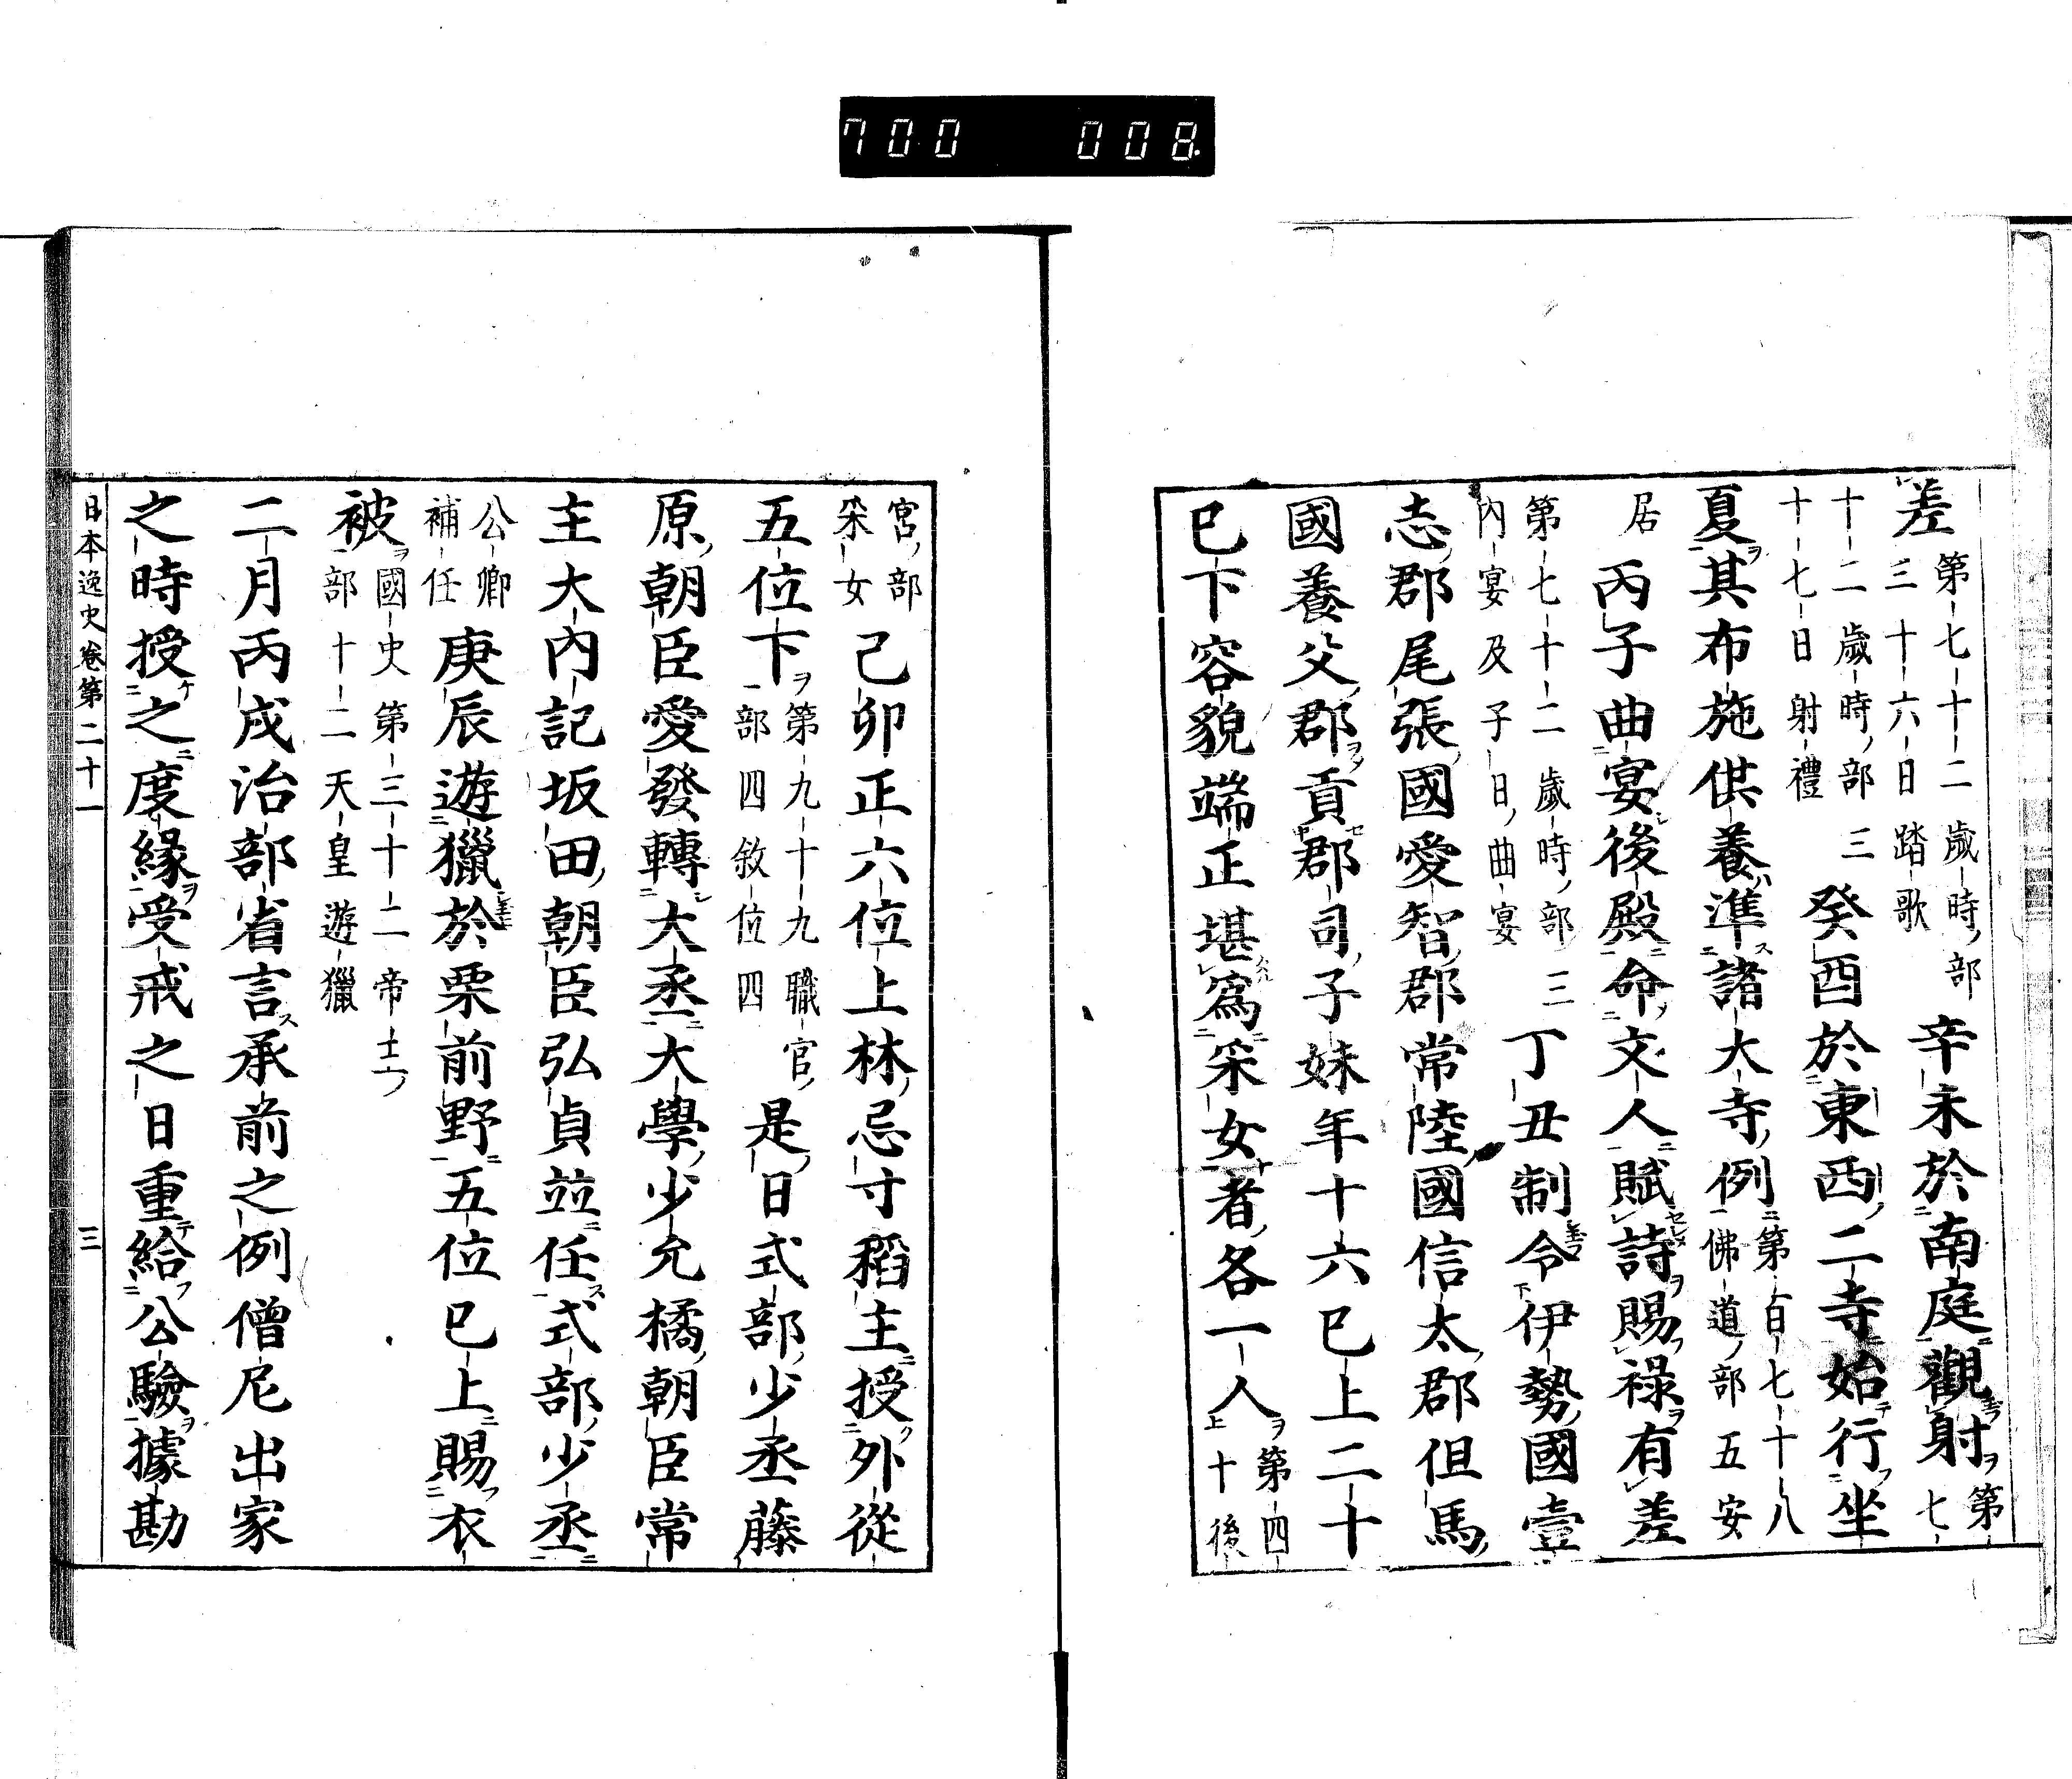 700 008
差第七十二歲時部三十六日踏歌 辛未於南庭觀射第七
十二歲時部三十七日射禮 癸酉於東西二寺始行坐
夏其布施供養準諸大寺例第一百七十八佛道部五安
居 丙子曲宴後殿命文人賦詩賜祿有差
第七十二歲時部三內宴及子日曲宴 丁丑制令伊勢國壹
志郡尾張國愛智郡常陸國信太郡但馬
國養父郡貢郡司子妹年十六已上二十
已下容貌端正堪爲采女者各一人第四十後
宮部采女 己卯正六位上林忌寸稻主授外從
五位下第九十九職官部四敘位四 是日式部少丞藤
原朝臣愛發轉大丞大學少允橘朝臣常
主大內記坂田朝臣弘貞竝任式部少丞
公卿補任 庚辰遊獵於栗前野五位已上賜衣
被國史第三十二帝王部十二天皇遊獵
二月丙戌治部省言承前之例僧尼出家
之時授之度緣受戒之日重給公驗據勘
日本逸史卷第二十一 三